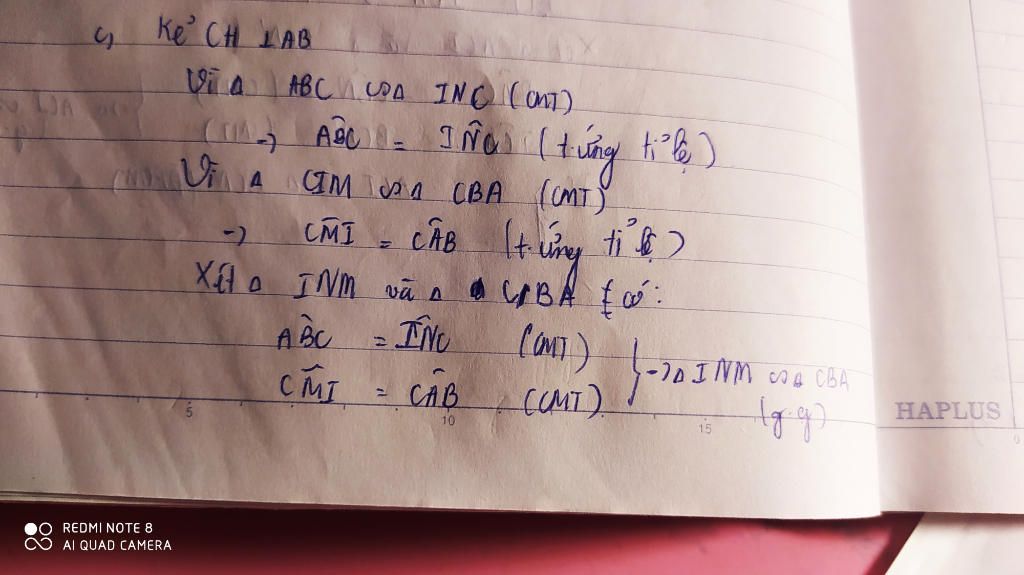 c, Kẻ CH ⊥ AB
Vì Δ ABC ∽ Δ INC (CMT)
→ ABC = INC (t.ứng tỉ lệ)
Vì Δ CIM ∽ Δ CBA (CMT)
→ CMI = CAB (t.ứng tỉ lệ)
Xét Δ INM và Δ CBA có:
ABC = INC (CMT)
CMI = CAB (CMT)
} → Δ INM ∽ Δ CBA
(g.g)
5 10 15 0
HAPLUS
REDMI NOTE 8
AI QUAD CAMERA